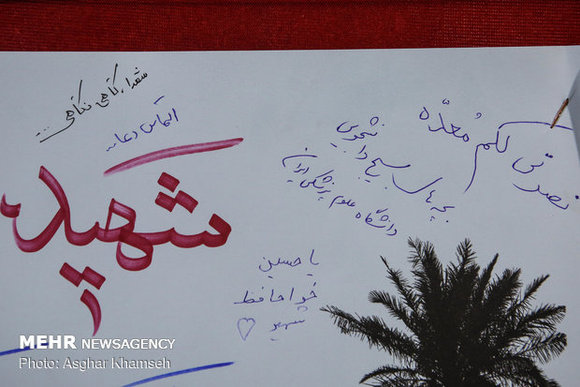 شهدا، گاهی نگاهی...
التماس دعا...
شهید
نصرتی لکم مُعدّه
بچه های بسیج دانشجویی
دانشگاه علوم پزشکی ایران
یا حسین
خداحافظ
شهید
MEHR NEWSAGENCY
Photo: Asghar Khamseh